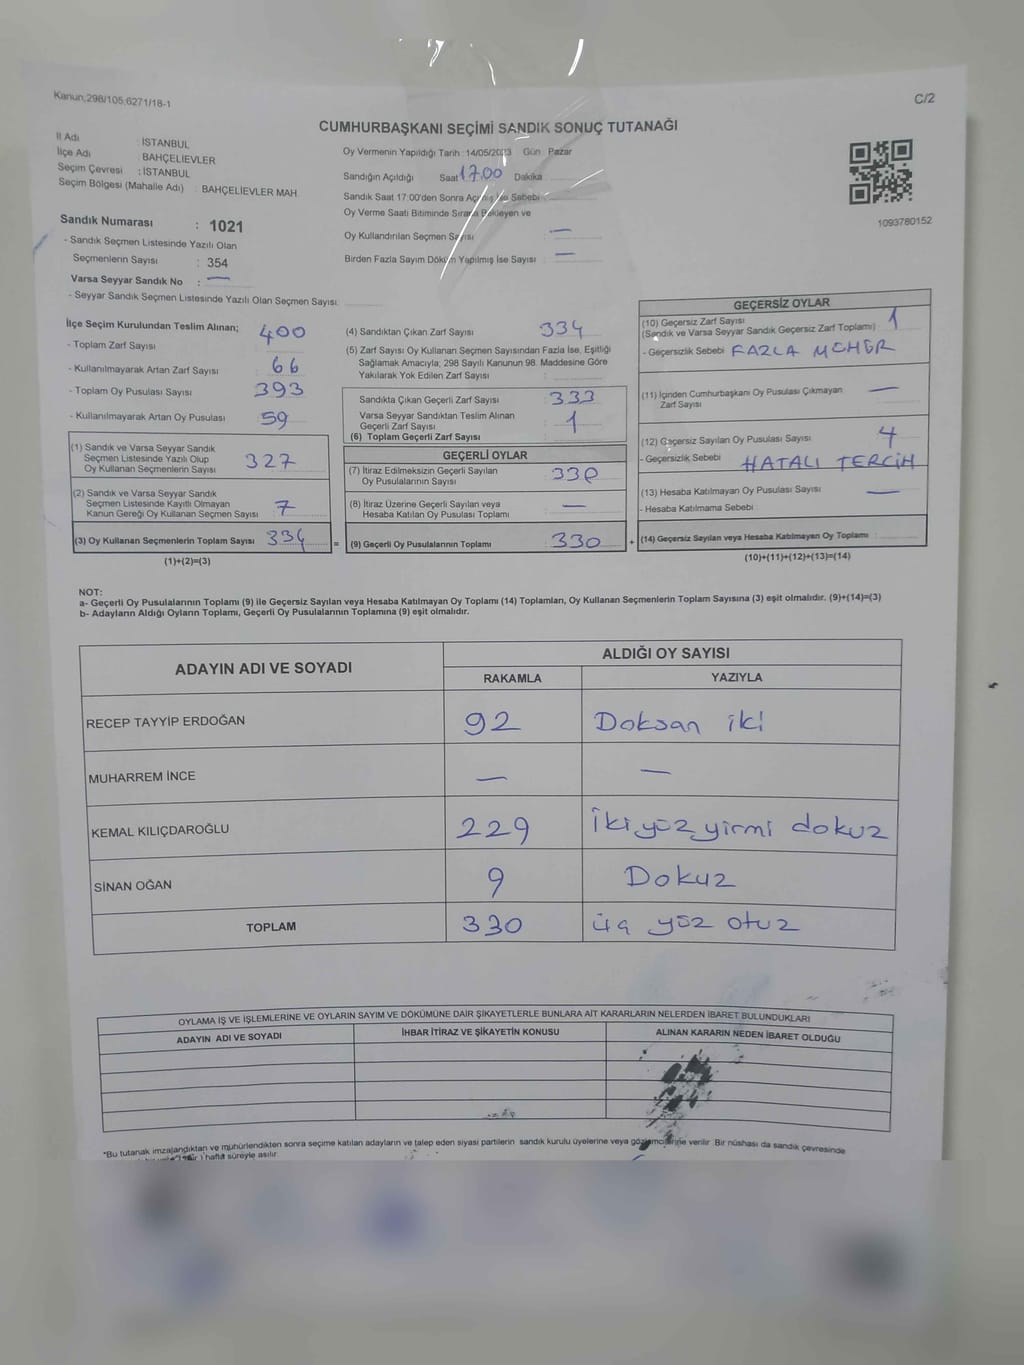 Kanun;298/105,6271/18-1
C/2
CUMHURBAŞKANI SEÇİMİ SANDIK SONUÇ TUTANAĞI
İl Adı : İSTANBUL
İlçe Adı : BAHÇELİEVLER
Seçim Çevresi : İSTANBUL
Seçim Bölgesi (Mahalle Adı) : BAHÇELİEVLER MAH.
Sandık Numarası : 1021
- Sandık Seçmen Listesinde Yazılı Olan
Seçmenlerin Sayısı : 354
Varsa Seyyar Sandık No : —
- Seyyar Sandık Seçmen Listesinde Yazılı Olan Seçmen Sayısı:
Oy Vermenin Yapıldığı Tarih : 14/05/2023 Gün : Pazar
Sandığın Açıldığı Saat 17.00 Dakika
Sandık Saat 17:00'den Sonra Sebebi
Oy Verme Saati Bitiminde Sırada Bekleyen ve
Oy Kullandırılan Seçmen Sayısı : —
Birden Fazla Sayım Döküm Yapılmış İse Sayısı : —
1093780152
İlçe Seçim Kurulundan Teslim Alınan; 400
- Toplam Zarf Sayısı
- Kullanılmayarak Artan Zarf Sayısı : 66
- Toplam Oy Pusulası Sayısı : 393
- Kullanılmayarak Artan Oy Pusulası : 59
(1) Sandık ve Varsa Seyyar Sandık
Seçmen Listesinde Yazılı Olup
Oy Kullanan Seçmenlerin Sayısı : 327
(2) Sandık ve Varsa Seyyar Sandık
Seçmen Listesinde Kayıtlı Olmayan
Kanun Gereği Oy Kullanan Seçmen Sayısı : 7
(3) Oy Kullanan Seçmenlerin Toplam Sayısı : 334 =
(1)+(2)=(3)
(4) Sandıktan Çıkan Zarf Sayısı : 334
(5) Zarf Sayısı Oy Kullanan Seçmen Sayısından Fazla İse, Eşitliği
Sağlamak Amacıyla, 298 Sayılı Kanunun 98. Maddesine Göre
Yakılarak Yok Edilen Zarf Sayısı :
Sandıkta Çıkan Geçerli Zarf Sayısı : 333
Varsa Seyyar Sandıktan Teslim Alınan
Geçerli Zarf Sayısı : 1
(6) Toplam Geçerli Zarf Sayısı :
GEÇERLİ OYLAR
(7) İtiraz Edilmeksizin Geçerli Sayılan
Oy Pusulalarının Sayısı : 330
(8) İtiraz Üzerine Geçerli Sayılan veya
Hesaba Katılan Oy Pusulası Toplamı : —
(9) Geçerli Oy Pusulalarının Toplamı : 330 +
GEÇERSİZ OYLAR
(10) Geçersiz Zarf Sayısı
(Sandık ve Varsa Seyyar Sandık Geçersiz Zarf Toplamı) : 1
- Geçersizlik Sebebi : FAZLA MÜHÜR
(11) İçinden Cumhurbaşkanı Oy Pusulası Çıkmayan
Zarf Sayısı : —
(12) Geçersiz Sayılan Oy Pusulası Sayısı : 4
- Geçersizlik Sebebi : HATALI TERCİH
(13) Hesaba Katılmayan Oy Pusulası Sayısı : —
- Hesaba Katılmama Sebebi :
(14) Geçersiz Sayılan veya Hesaba Katılmayan Oy Toplamı :
(10)+(11)+(12)+(13)=(14)
NOT:
a- Geçerli Oy Pusulalarının Toplamı (9) ile Geçersiz Sayılan veya Hesaba Katılmayan Oy Toplamı (14) Toplamları, Oy Kullanan Seçmenlerin Toplam Sayısına (3) eşit olmalıdır. (9)+(14)=(3)
b- Adayların Aldığı Oyların Toplamı, Geçerli Oy Pusulalarının Toplamına (9) eşit olmalıdır.
ADAYIN ADI VE SOYADI
ALDIĞI OY SAYISI
RAKAMLA YAZIYLA
RECEP TAYYİP ERDOĞAN 92 Doksan iki
MUHARREM İNCE — —
KEMAL KILIÇDAROĞLU 229 İkiyüz yirmi dokuz
SİNAN OĞAN 9 Dokuz
TOPLAM 330 üç yüz otuz
OYLAMA İŞ VE İŞLEMLERİNE VE OYLARIN SAYIM VE DÖKÜMÜNE DAİR ŞİKAYETLERLE BUNLARA AİT KARARLARIN NELERDEN İBARET BULUNDUKLARI
ADAYIN ADI VE SOYADI İHBAR İTİRAZ VE ŞİKAYETİN KONUSU ALINAN KARARIN NEDEN İBARET OLDUĞU
*Bu tutanak imzalandıktan ve mühürlendikten sonra seçime katılan adayların ve talep eden siyasi partilerin sandık kurulu üyelerine veya gözlemcilerine verilir. Bir nüshası da sandık çevresinde
) hafta süreyle asılır.